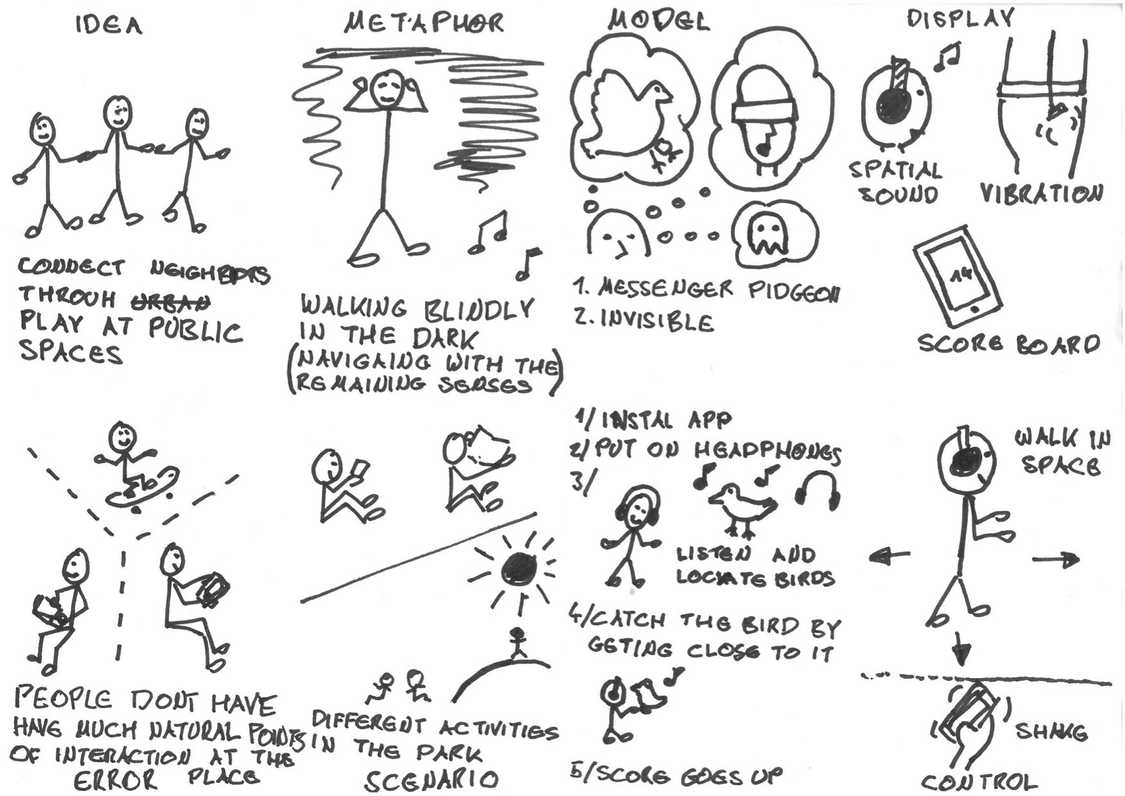 IDEA
CONNECT NEIGHBORS
THROUH URBAN
PLAY AT PUBLIC
SPACES
METAPHOR
WALKING BLINDLY
IN THE DARK
(NAVIGAING WITH THE
REMAINING SENSES)
MODEL
1. MESSENGER PIDGEON
2. INVISIBLE
DISPLAY
SPATIAL
SOUND
VIBRATION
14
SCORE BOARD
PEOPLE DONT HAVE
HAVE MUCH NATURAL POINTS
OF INTERACTION AT THE
PLACE
ERROR
DIFFERENT ACTIVITIES
IN THE PARK
SCENARIO
1/ INSTAL APP
2/ PUT ON HEADPHONES
3/
LISTEN AND
LOCATE BIRDS
4/ CATCH THE BIRD BY
GETING CLOSE TO IT
5/ SCORE GOES UP
WALK IN
SPACE
SHAKE
CONTROL